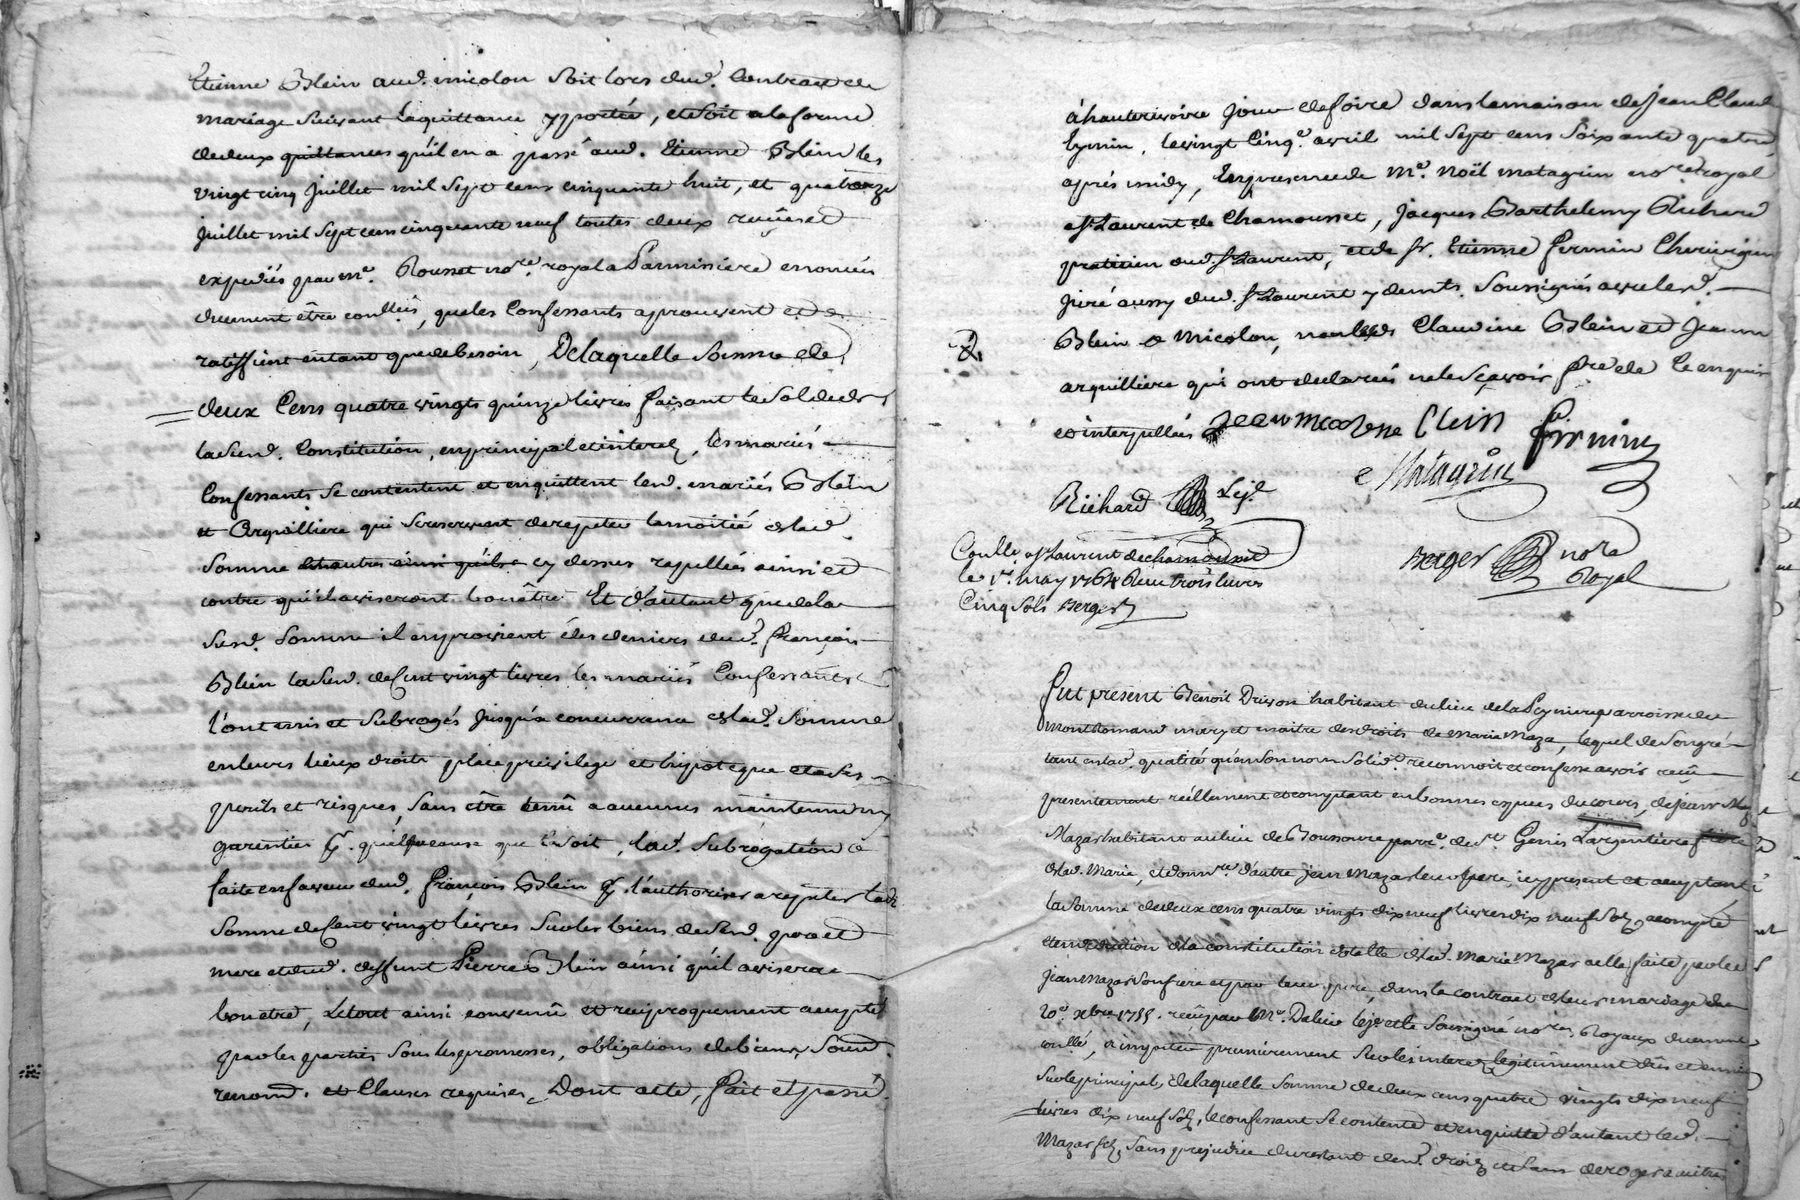 Etienne Blein aud. micolon soit lors dud. Contract de
mariage suivant la quittance y portée, et soit a la forme
de deux quittances qu'il en a passé aud. Etienne Blein les
vingt cinq Juillet mil sept cens cinquante huit, et quatorze
juillet mil sept cens cinquante neuf toutes deux reçües et
expediés par me. Rousset nore. royal a Larminiere
düement être conllées, que les Confessants aprouvent et
ratiffient entant que de besoin, De laquelle somme de
deux Cens quatre vingts quinze livres faisant le solde de
lasusd. Constitution, en principal et interets, les mariés
Confessants se contentent et en quittent lesd. mariés Blein
et Arquilliere qui se reservent de repeter la moitié de lad.
somme et autres ainsi qu'ils cy dessus rapellées ainsi et
contre qui ils aviseront bon être Et d'autant que de la
susd. somme il en provient des deniers dud. françois
Blein lasusd. de Cent vingt livres les mariés Confessants
l'ont mis et subrogés jusqu'a concurrence de lad. somme
en leurs lieux droits place privilege et hipoteque et a ses
perils et risques, sans être tenu a aucunes maintenüe ny
garentie pr. quelque cause que ce soit, lad. subrogation
faite en faveur dud. françois Blein pr. l'authoriser a repeter lad.
somme de Cent vingt livres sur les biens de sesd. pere et
mere et dud. deffunt Pierre Blein ainsi qu'il avisera
bon etre, Le tout ainsi convenû et reciproquement accepté
par les parties sous les promesses, obligations de biens, soumd.
renond. et Clauses requises, Dont acte, fait et passé
à hauterivoire jour de foire dans la maison de Jean Claude
Eymin, le vingt cinqe. avril mil sept cens soixante quatre,
aprés midy, En presence de Me. Noël Matagrin nore royal
a St. Laurent de Chamousset, Jacques Barthelemy Richard
praticien aud. St. Laurent, et de Sr. Etienne fermin Chirurgien
juré aussy dud. St. Laurent y demts. soussignés avec lesd.
Blein et Micolon, non lesd. Claudine Blein et Jeanne
arquilliere qui ont declarées ne le sçavoir pre de ce enquis
et interpellées Jean micolon Blein firmin
Matagrin
Richard
Conllé a St. Laurent de chamousset
le 1er. may 1764 Reçu trois livres
Cinq sols Berger
Berger nore
Royal
fut present Benoit Drivon habitant du lieu de la parroisse de
Montromand mary et maitre des droits de Marie Mazas, lequel de son gré
tant en lad. qualité qu'en son nom solide. reconnoit et confesse avoir reçû
presentement reéllement et comptant en bonnes especes du cours, de jean
Mazas habitant au lieu de parre. de St. Genis L'argentiere frere
de lad. Marie, et donre. d'autre jean Mazas leur pere, icy present et acceptant
la somme de deux cens quatre vingts dix neuf livres dix neuf sols acompte
et en deduction de la constitution dotalle de lad. Marie Mazas a elle faite par led.
jean Mazas son frere et par leur pere, dans le contract de leur mariage du
20e. xbre 1755. reçû par Me. Dalin et le soussigné nores. Royaux düement
conllé, a imputer premierement sur les interets legitimement dûs et ensuite
sur le principal, de laquelle somme de deux cens quatre vingts dix neuf
livres dix neuf sols, le confessant se contente et en quitte d'autant led.
Mazas fils, sans prejudice du restant de ses. droits et sans deroger a autre